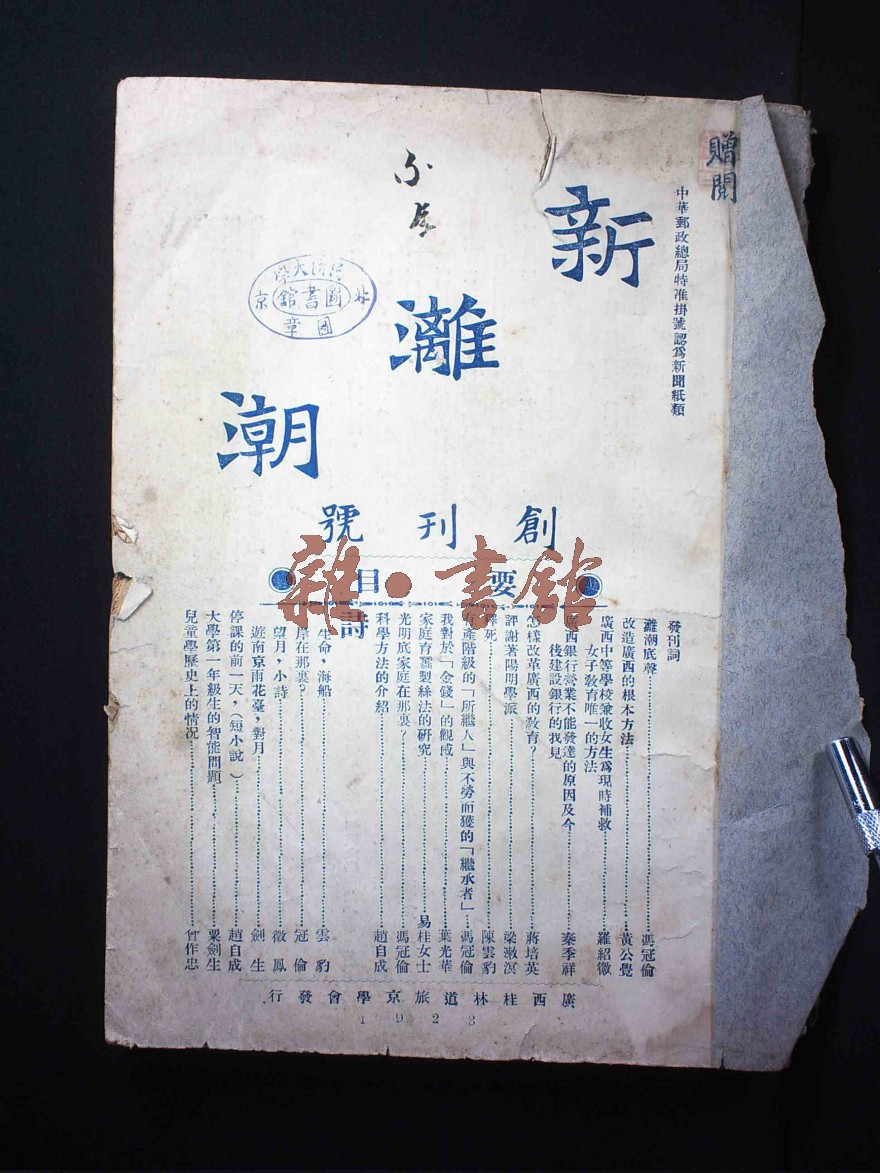 贈閱
中華郵政總局特准掛號認爲新聞紙類
新
灕
潮
創刊號
圖書館
圖章
要目
發刊詞
灕潮底聲……馮冠倫
改造廣西的根本方法……黃公覺
廣西中等學校兼收女生爲現時補救
女子敎育唯一的方法……羅紹徵
廣西銀行營業不能發達的原因及今
後建設銀行的我見……秦季祥
怎樣改革廣西的敎育？……蔣培英
評謝著陽明學派……梁漱溟
釋死……陳雲豹
有產階級的「所繼人」與不勞而獲的「繼承者」……馮冠倫
我對於「金錢」的觀感……葉光華
家庭育蠶製絲法的研究……易桂女士
光明底家庭在那裏？……馮冠倫
科學方法的介紹……趙自成
詩
生命，海船……雲豹
岸在那裏？……冠倫
望月，小詩……徵鳳
遊南京雨花臺，對月……劍生
停課的前一天，（短小說）……趙自成
大學第一年級生的智能問題……粟劍生
兒童學歷史上的情況……曾作忠
廣西桂林道旅京學會發行
1923
雜·書館